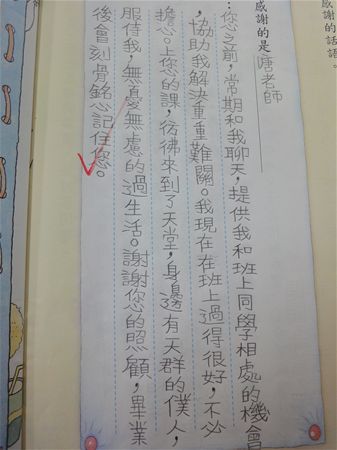 感謝的話語。
感謝的是唐老師
…您之前,常期和我聊天,提供我和班上同學相處的機會
,協助我解決重重難關。我現在在班上過得很好,不必
擔心。上您的課,彷彿來到了天堂,身邊有一天群的僕人,
服侍我,無憂無慮的過生活。謝謝您的照顧,畢業
後會刻骨銘心記住您。